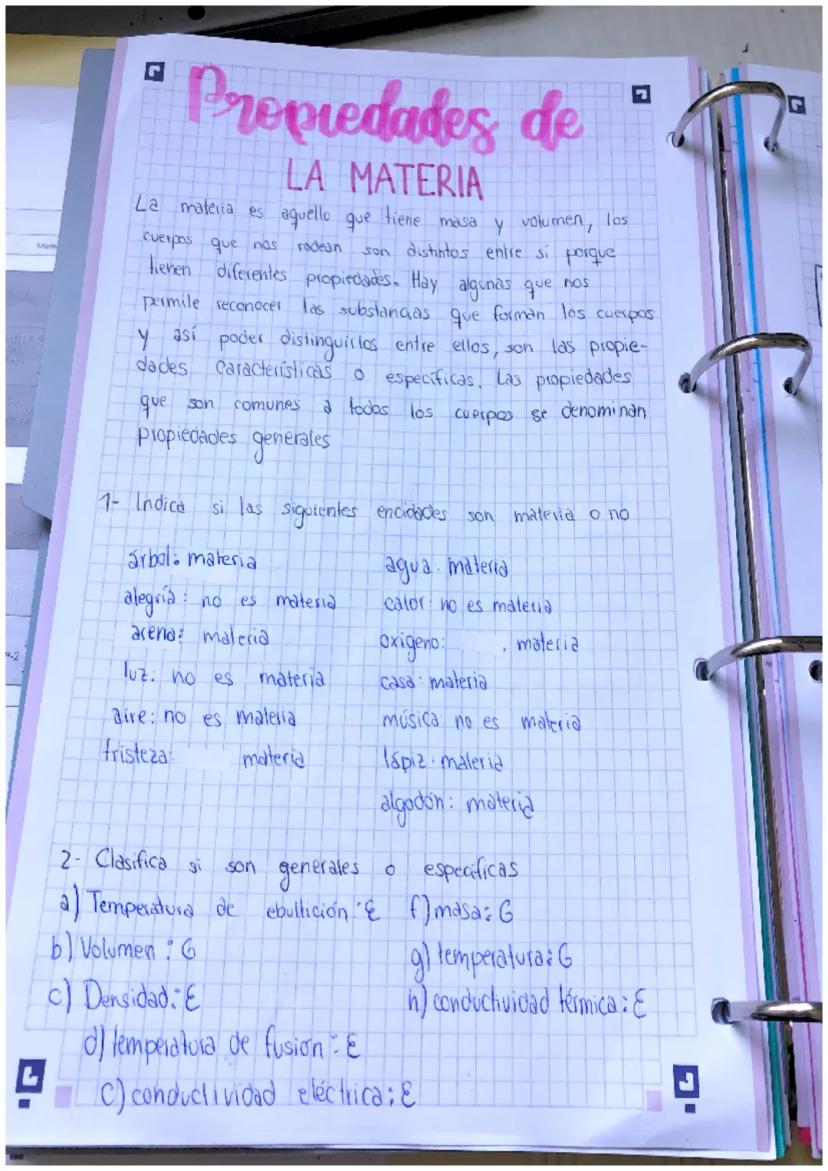 Propiedades de
LA MATERIA
La materia es aquello que tiene masa y volumen, los
cuerpos que nos rodean son distintos entre sí porque
tienen diferentes propiedades. Hay algunas que nos
permite reconocer las substancias que forman los cuerpos
y así poder distinguirlos entre ellos, son las propie-
dades características o específicas. Las propiedades
que son comunes a todos los cuerpos se denominan
propiedades generales
1- Indica si las siguientes encidades son materia o no
árbol: materia
alegría: no es materia
arena: materia
luz: no es materia
aire: no es materia
tristeza: materia
agua: materia
calor: no es materia
oxigeno: , materia
casa: materia
música: no es materia
lápiz: materia
algodón: materia
2- Clasifica si son generales o específicas
a) Temperatura de ebullición: E
b) Volumen: G
c) Densidad: E
d) temperatura de fusión: E
C) conductividad eléctrica: E
f) masa: G
g) temperatura: G
h) conductividad térmica: E